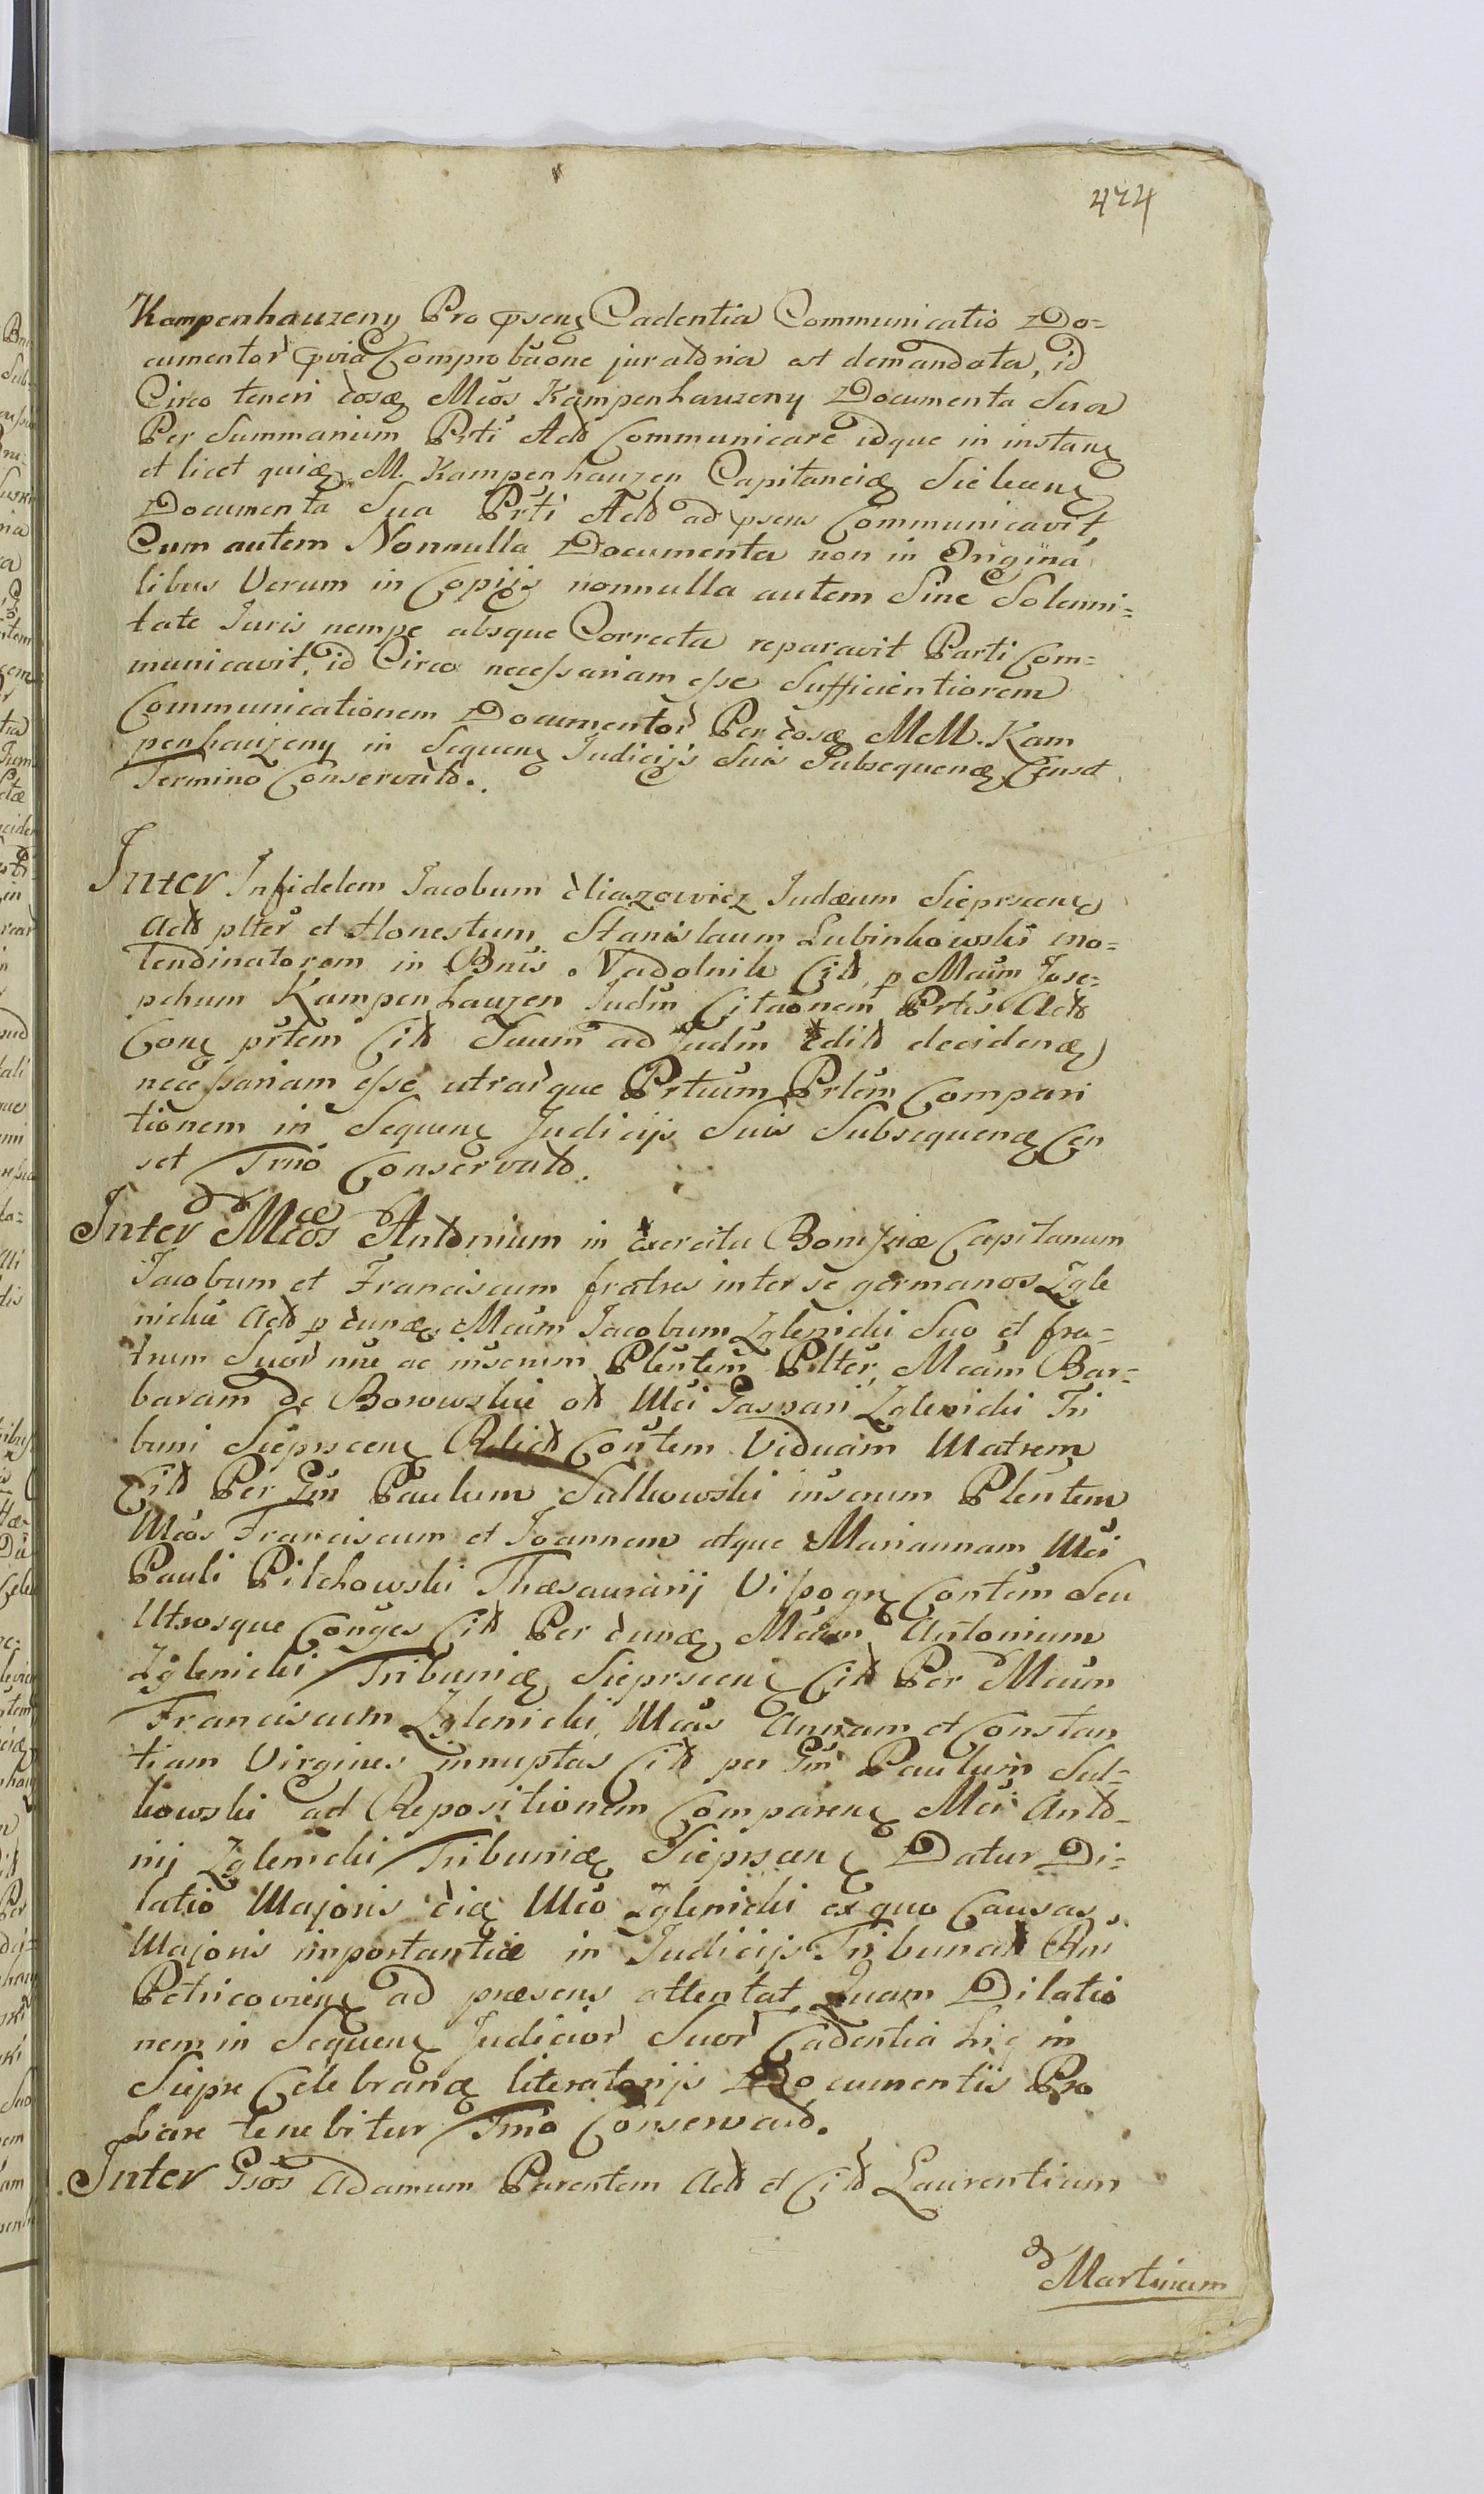 474
Kampenhauzeny Pro pseng Cadentia Communicatio Do=
cumentor pvia Comprobaone juratoria est demandata, id
Circo teneri cosdg Mcos Kampenhauzeny Documenta Sua
Per Summarium Prti Acto Communicare idque in instang
et licet quidg M. Kampenhauzen Capitaneidg Sieluceng
Documenta Sua Prti Acto ad psens Communicavit,
Cum autem Nonnulla Documenta non in Origina
libus Verum in Copijs nonnulla autem Sine Solenni=
tate Juris nempe absque Correcta reparavit Parti Com=
municavit, id Circo necessariam esse Sufficientiorem
Communicationem Documentor Per cosdg MM. Kam
penhauzeny in Sequeng Judicijs Suis Subsequendg Censet
Termino Conservato.
Inter Infidelem Jacobum Eliazowicz Judæum Sieprceng
Acto plter et Honestum Stanislaum Lubinkowski mo=
lendinatorem in Bnis Nadolnik Cito p Mcum Jose=
pehum Kampenhauzen Judm Citaonem Prtis Acto
Cong prtem Cito Suum ad Judm Edito decidendg
necessariam esse utrarque Prtium Prlem Compari
tionem in Sequeng Judicijs Suis Subsequendg Cen
set Tmo Conservato.
Inter Mcos Antonium in Exercitu Borussiæ Capitanum
Jacobum et Franciscum fratres inter se germanos Zgle
nickie Acto p eundg Mcum Jacobum Zglenicki Suo et fra=
trum Suor nne ac inserum Plentem Plter, Mcam Bar=
baram de Borowskie ol Mci Gaspari Zglenicki Tri
buni Sieprsceng Relict Contem Viduam Matrem
Cito Per Gm Paulum Sulkowski inserum Plentem
Mcos Franciscum et Joannem atque Mariannam Mci
Pauli Pilchowski Thæsaurarij Vissogng Contem Seu
Utrosque Conges Cito Per eundg Mcum Antonium
Zglenicki Tribunidg Sieprsceng Cito Per Mcum
Franciscum Zglenicki, Mcas Annam et Constan
tiam Virgines innuptas Cito per Gm Paulum Sul=
kowski ad Repositionem Compareng Mci Anto=
nij Zglenicki Tribunidg Sieprsceng Datur Di=
latio Majoris eidg Mco Zglenicki ex quo Causas
Majoris importantiæ in Judicijs Tribunal Rni
Petricovieng ad præsens attentat, Quam Dilatio
nem in Sequeng Judicior Suor Cadentia hic in
Siepre Celebrandg literatorijs Documentis Pro
bare tenebitur Tmo Conservato.
Inter Gsos Adamum Parentem Acto et Cito Laurentium
et
Martinum